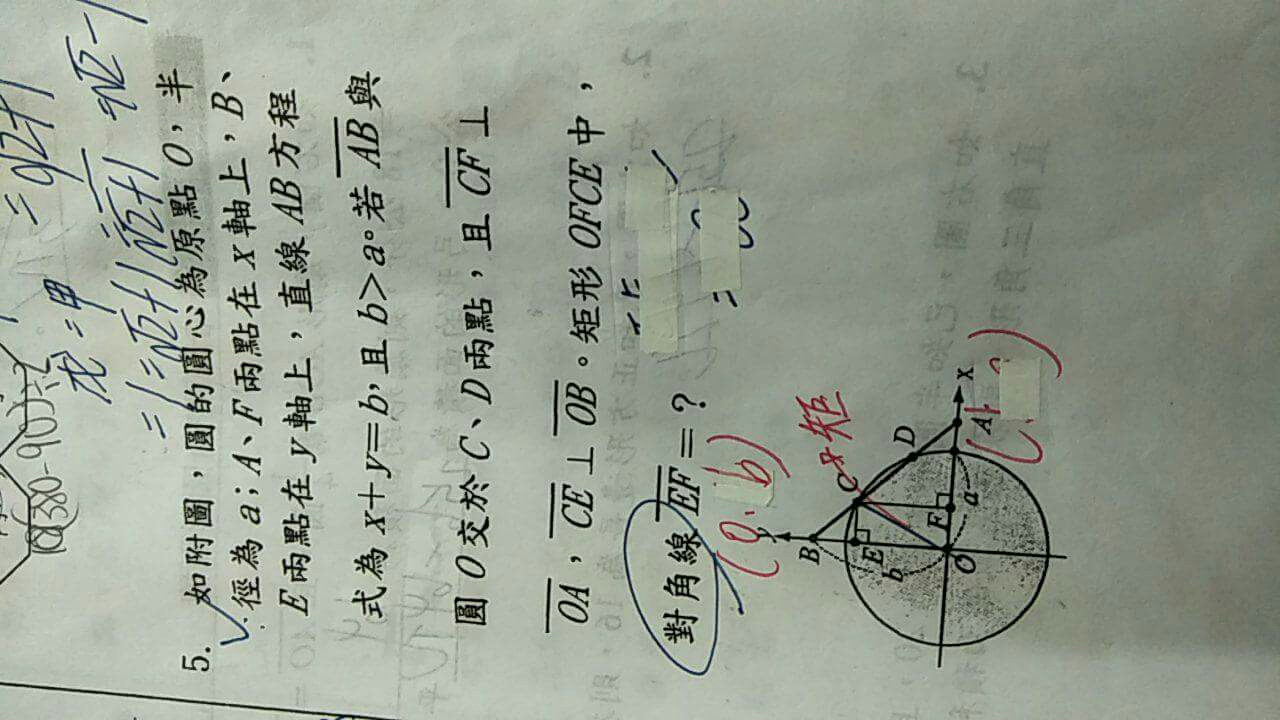 = 9√2+1
(180-90)÷2
= 1 = √2+1 √2+1 9√2-1
5. 如附圖，圓的圓心為原點 O，半
徑為 a；A、F 兩點在 x 軸上，B、
E 兩點在 y 軸上，直線 AB 方程
式為 x+y=b，且 b>a。若 AB 與
圓 O 交於 C、D 兩點，且 CF⊥
OA，CE⊥OB。矩形 OFCE 中，
對角線 EF=？
(0, b)
矩
y
B
C
D
E
b
F
A
x
O
a